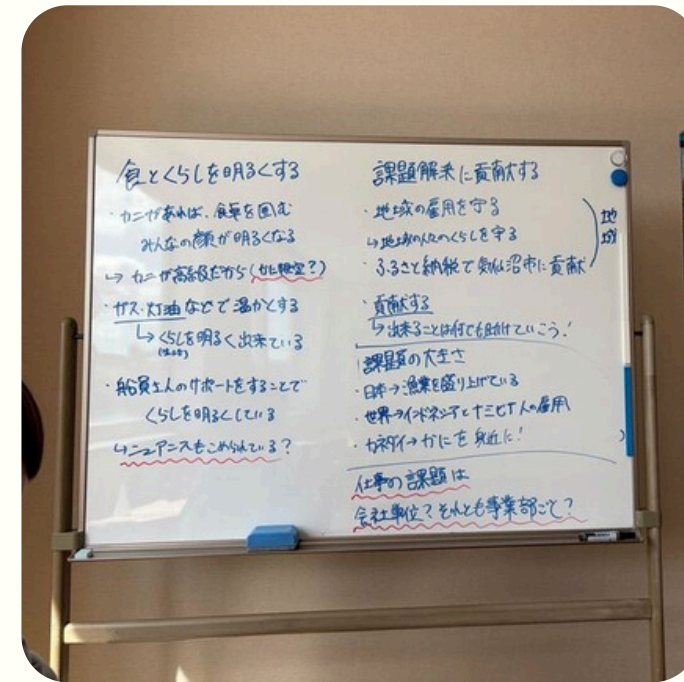 食とくらしを明るくする
・カニがあれば、食卓を囲む
みんなの顔が明るくなる
↳ カニが高級だから(かに限定?)
・ガス・灯油などで温かくする
↳くらしを明るく出来ている
・船員さんのサポートをすることで
くらしを明るくしている
↳ニュアンスもこめられている?
課題解決に貢献する
・地域の雇用を守る
↳地域の人々のくらしを守る
・ふるさと納税で気仙沼市に貢献
地域
・貢献する
↳出来ることは何でも助けていこう!
課題の大きさ
・日本→漁業を盛り上げている
・世界→インドネシアとナミビア人の雇用
・カネダイ→かにを身近に!
仕事の課題は
会社単位?それとも事業部ごと?